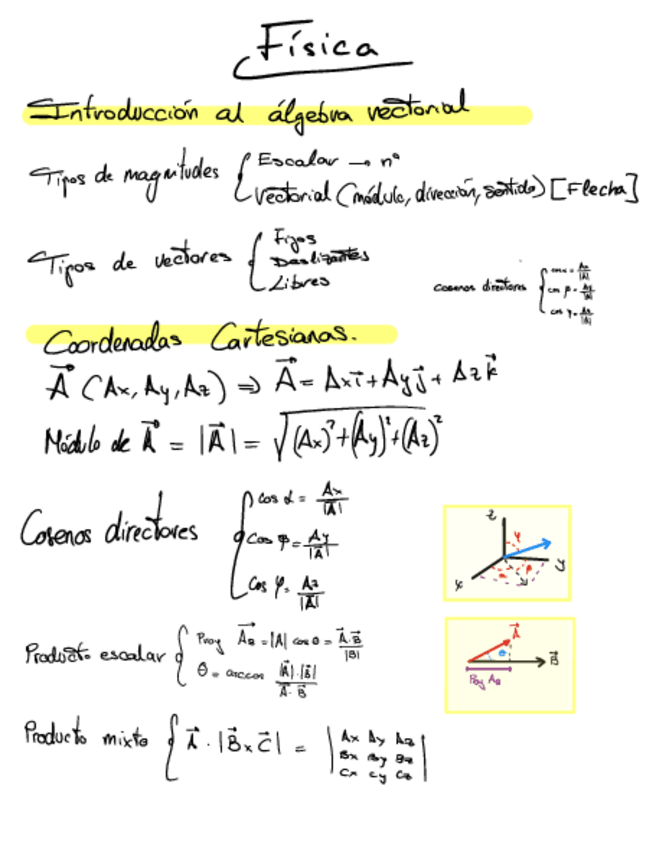 Física
Introducción al álgebra vectorial
Tipos de magnitudes { Escalar → nº
Vectorial (módulo, dirección, sentido) [Flecha]
Tipos de vectores { Fijos
Deslizantes
Libres
Cosenos directores { cos α = Ax/|A|
cos β = Ay/|A|
cos γ = Az/|A|
Coordenadas Cartesianas.
A⃗ (Ax, Ay, Az) ⇒ A⃗ = Ax i⃗ + Ay j⃗ + Az k⃗
Módulo de A⃗ = |A⃗| = √((Ax)² + (Ay)² + (Az)²)
Cosenos directores { cos α = Ax/|A⃗|
cos φ = Ay/|A⃗|
cos φ = Az/|A⃗|
z
φ
y
x
Producto escalar { Proy A⃗B = |A| cos θ = A⃗·B⃗/|B|
θ = arccos |A⃗|·|B⃗|/A⃗·B⃗
A⃗
θ
B⃗
Proy AB
Producto mixto { A⃗ · |B⃗ x C⃗| = | Ax Ay Az
Bx By Bz
Cx Cy Cz |